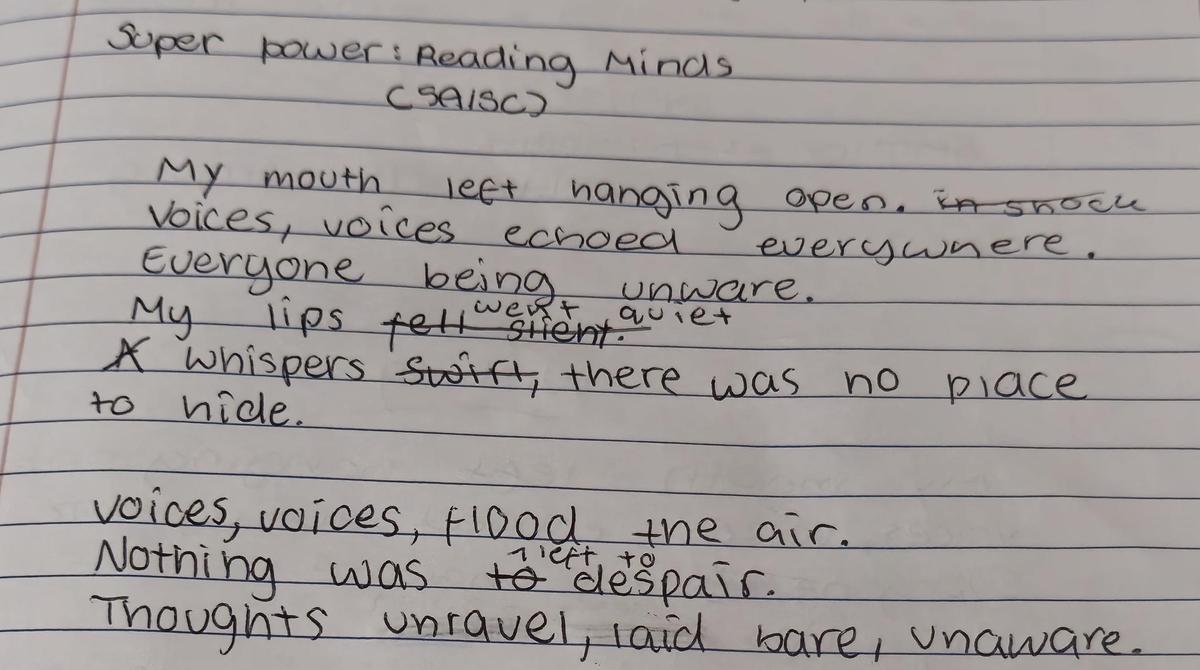 Super power: Reading Minds
(SA/SC)
My mouth left hanging open. in shock
Voices, voices echoed everywhere.
Everyone being unware.
My lips fell silent. went quiet
A whispers swift, there was no place
to hide.
Voices, voices, flood the air.
Nothing was to left to despair.
Thoughts unravel, laid bare, unaware.